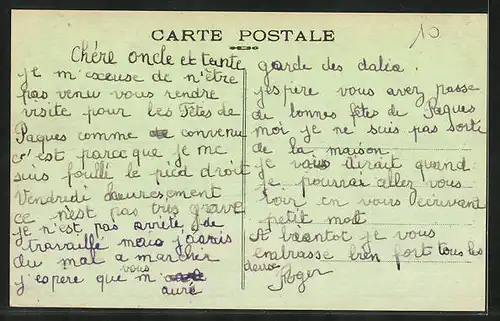 CARTE POSTALE
10
Chére oncle et tante
je m'exeuse de n'être
pas venu vous rendre
visite pour les Fêtes de
Paques comme convenu
c'est parce que je me
suis foullé le pied droit
Vendredi heuresement
ce n'est pas très grave
je n'est pas arrété de
travaillé mais j'avais
du mal a marcher
j'espere que vous m'
auré
garde des dalia.
j'espire vous avez passe
de bonnes fêtes de Paques
moi je ne suis pas sorti
de la maison
je vous dirait quand
je pourrai allez vous
voir en vous écrivant
petit mot
A bientot je vous
embrasse bien fort tous les
deux
Roger